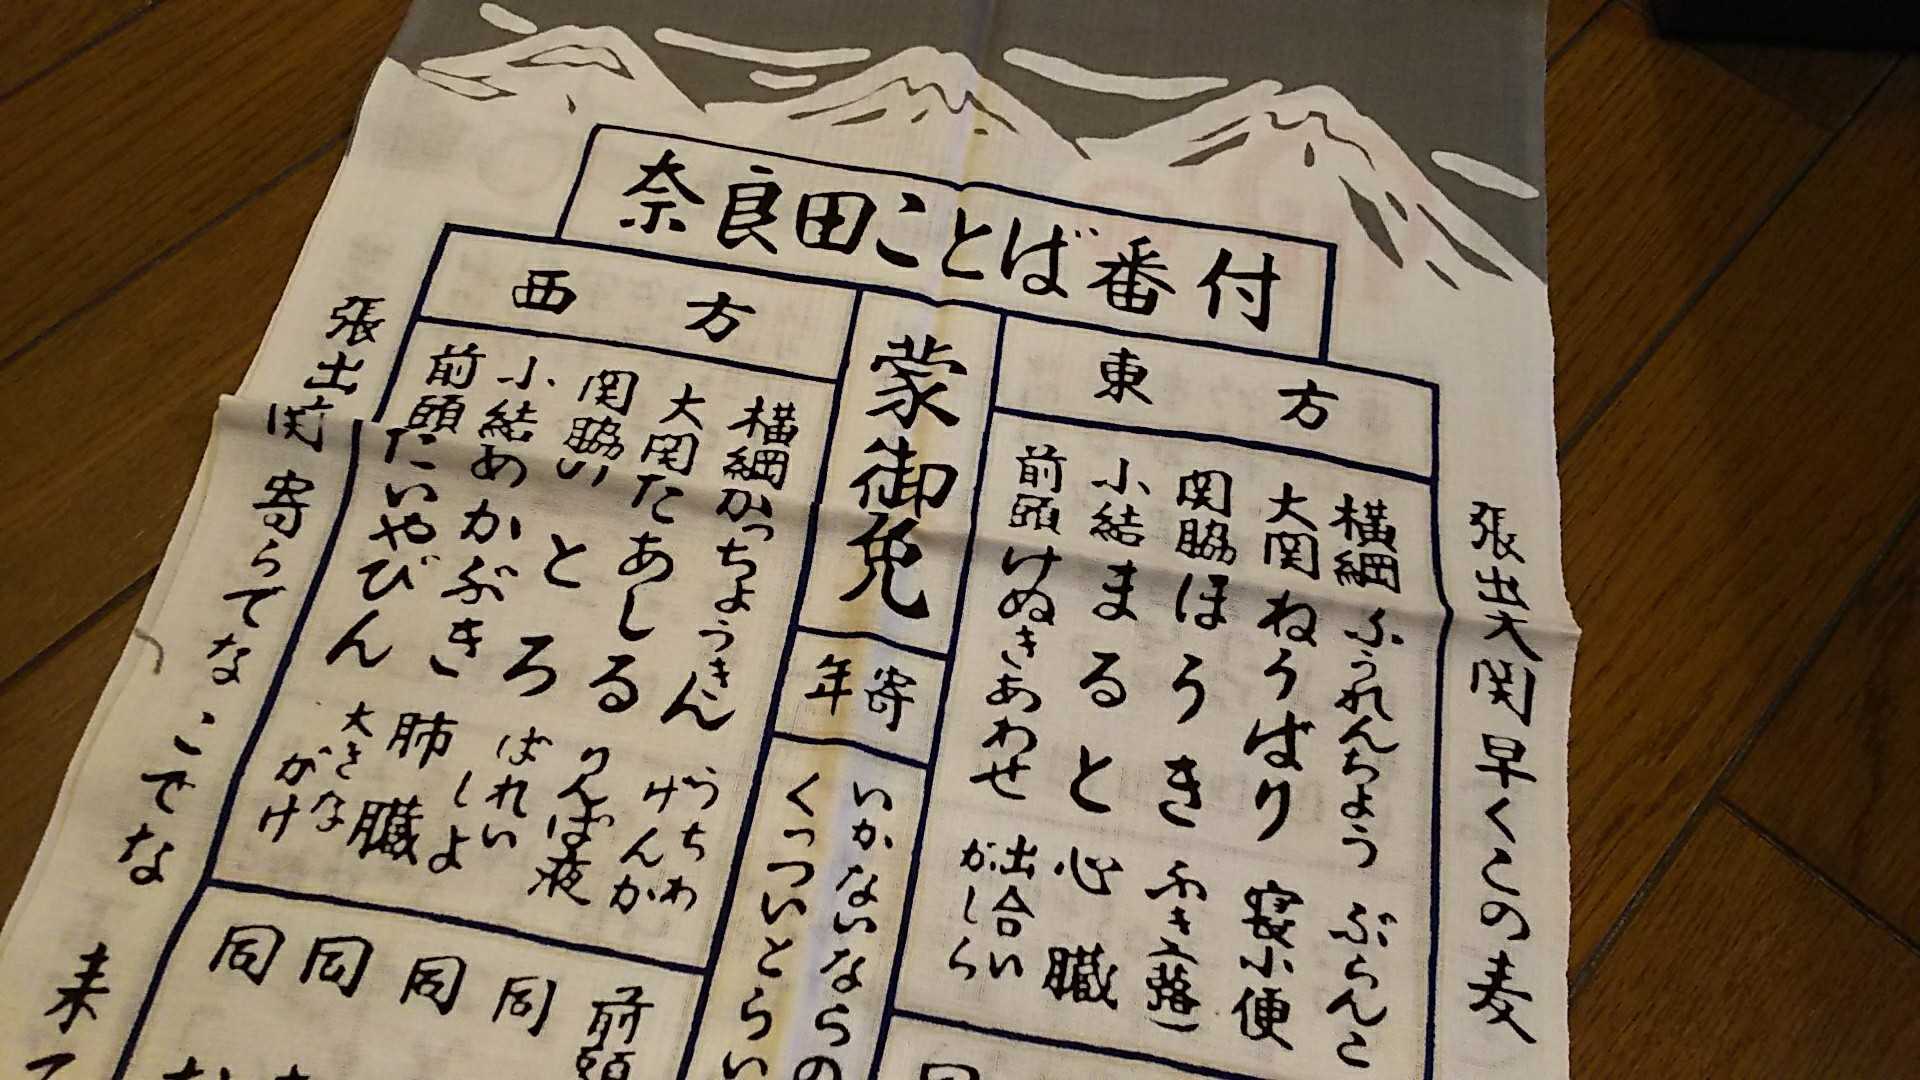 奈良田ことば番付
東方
張出大関 早くこの麦
横綱 ふうれんちょう ぶらんこ
大関 ねうばり 寝小便
関脇 ほうき
小結 まると 心臓
前頭 けぬきあわせ 出合いがしら
蒙御免
年寄
いかないならの
くっついとらい
西方
横綱 かっちょうきん うちわけんか
大関 たあしる りんぱ液
関脇 いとろ はれいしよ
小結 あかぶき 肺臓
前頭 たいやびん 大きながけ
張出関 寄らでな こでな 来て
前頭
同
同
同
同